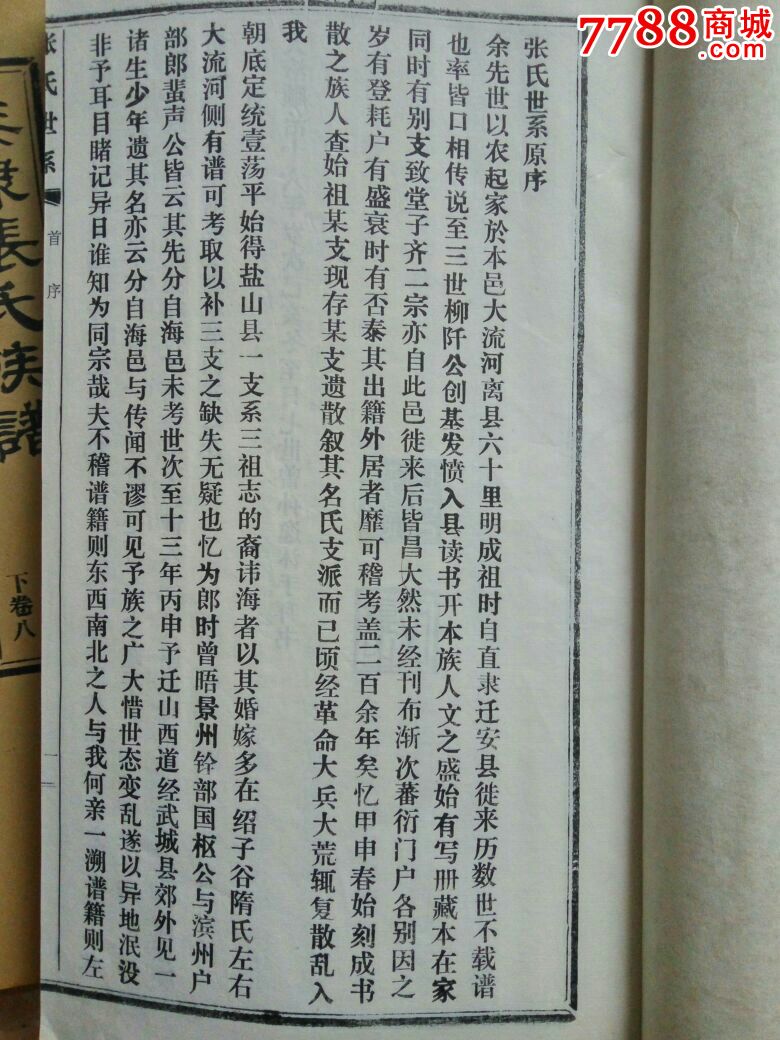 7788商城
张氏世系原序
余先世以农起家於本邑大流河离县六十里明成祖时自直隶迁安县徙来历数世不载谱
也率皆口相传说至三世柳阡公创基发愤入县读书开本族人文之盛始有写册藏本在家
同时有别支致堂子齐二宗亦自此邑徙来后皆昌大然未经刊布渐次蕃衍门户各别因之
岁有登耗户有盛衰时有否泰其出籍外居者靡可稽考盖二百余年矣忆甲申春始刻成书
散之族人查始祖某支现存某支遗散叙其名氏支派而已顷经革命大兵大荒辄复散乱入
我
朝底定统壹荡平始得盐山县一支系三祖志的裔讳海者以其婚嫁多在绍子谷隋氏左右
大流河侧有谱可考取以补三支之缺失无疑也忆为郎时曾晤景州铨部国枢公与滨州户
部郎蜚声公皆云其先分自海邑未考世次至十三年丙申予迁山西道经武城县郊外见一
诸生少年遗其名亦云分自海邑与传闻不谬可见予族之广大惜世态变乱遂以异地泯没
非予耳目睹记异日谁知为同宗哉夫不稽谱籍则东西南北之人与我何亲一溯谱籍则左
张氏世系
首序
一
張氏族譜
下卷八